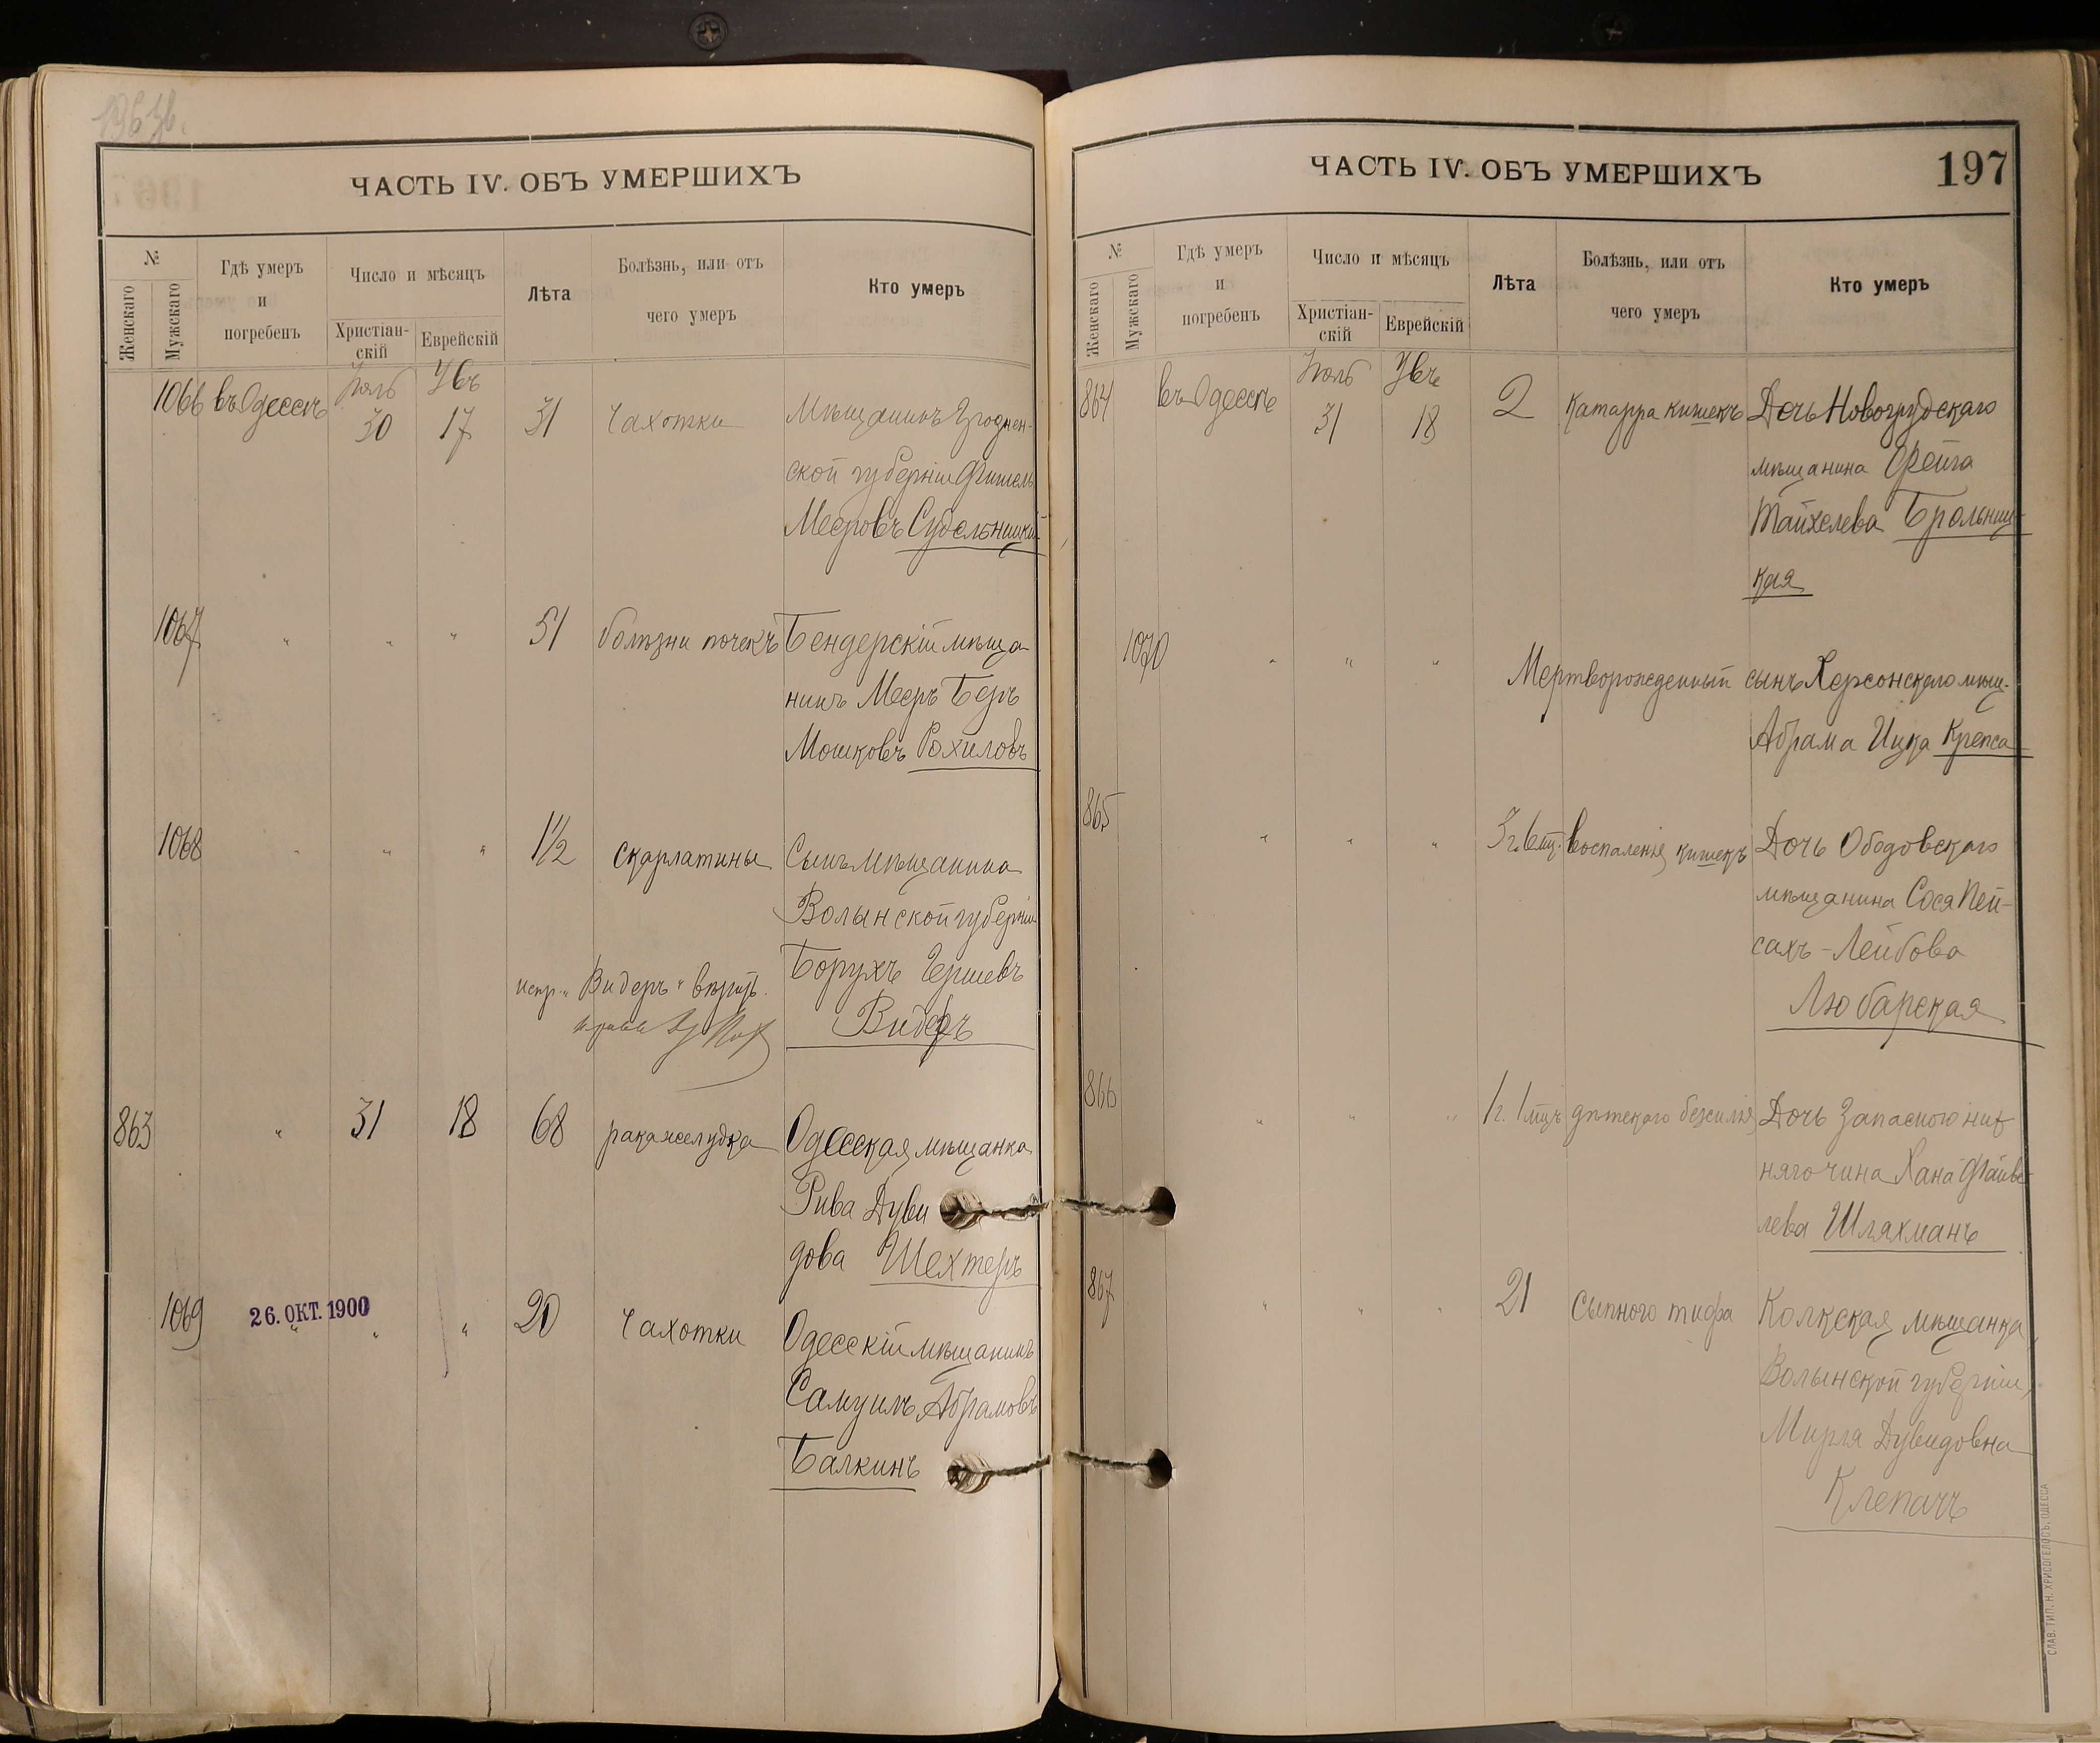 196 об.
ЧАСТЬ IV. ОБЪ УМЕРШИХЪ
№
Женскаго
Мужскаго
Гдѣ умеръ
и
погребенъ
Число и мѣсяцъ
Христіан-
скій
Еврейскій
Лѣта
Болѣзнь, или отъ
чего умеръ
Кто умеръ
Іюль
1066 въ Одессѣ 30 17 31 Чахотки Мѣщанинъ Гроднен-
ской губерніи Фишель
Мееровъ Судельницкій
1067 " " " 51 болѣзни почекъ Бендерскій мѣща
нинъ Мееръ Беръ
Мошковъ Рохиловъ
1068 " " " 1½ скарлатины Сынъ мѣщанина
Волынской губерніи
Борухъ Гершевъ
Видеръ
испр. „Видеръ" вѣрить.
863 " 31 18 68 рака желудка Одесская мѣщанка
Рива Дуви
дова Шехтеръ
1069 " " " 20 Чахотки Одесскій мѣщанинъ
Самуилъ Абрамовъ
Балкинъ
26. ОКТ. 1900
ЧАСТЬ IV. ОБЪ УМЕРШИХЪ
197
№
Женскаго
Мужскаго
Гдѣ умеръ
и
погребенъ
Число и мѣсяцъ
Христіан-
скій
Еврейскій
Лѣта
Болѣзнь, или отъ
чего умеръ
Кто умеръ
Іюль
864 въ Одессѣ 31 18 2 Катарра кишекъ Дочь Новогрудскаго
мѣщанина Фейга
Тайхелева Брольниц-
кая
1070 " " " Мертворожденный сынъ Херсонскаго мѣщ.
Абрама Ицка Крепса
865 " " " 3 г. 6 мц. воспаленія кишекъ Дочь Ободовскаго
мѣщанина Сося Пей-
сахъ-Лейбова
Любарская
866 " " " 1 г. 1 мцъ дѣтскаго безсилія Дочь Запасного ниж
няго чина Хана Файве
лева Шляхманъ
867 " " " 21 Сыпного тифа Колкская мѣщанка
Волынской губерніи
Мирля Дувидовна
Клепачъ
СЛАВ. ТИП. Н. ХРИСОГЕЛОСЪ, ОДЕССА